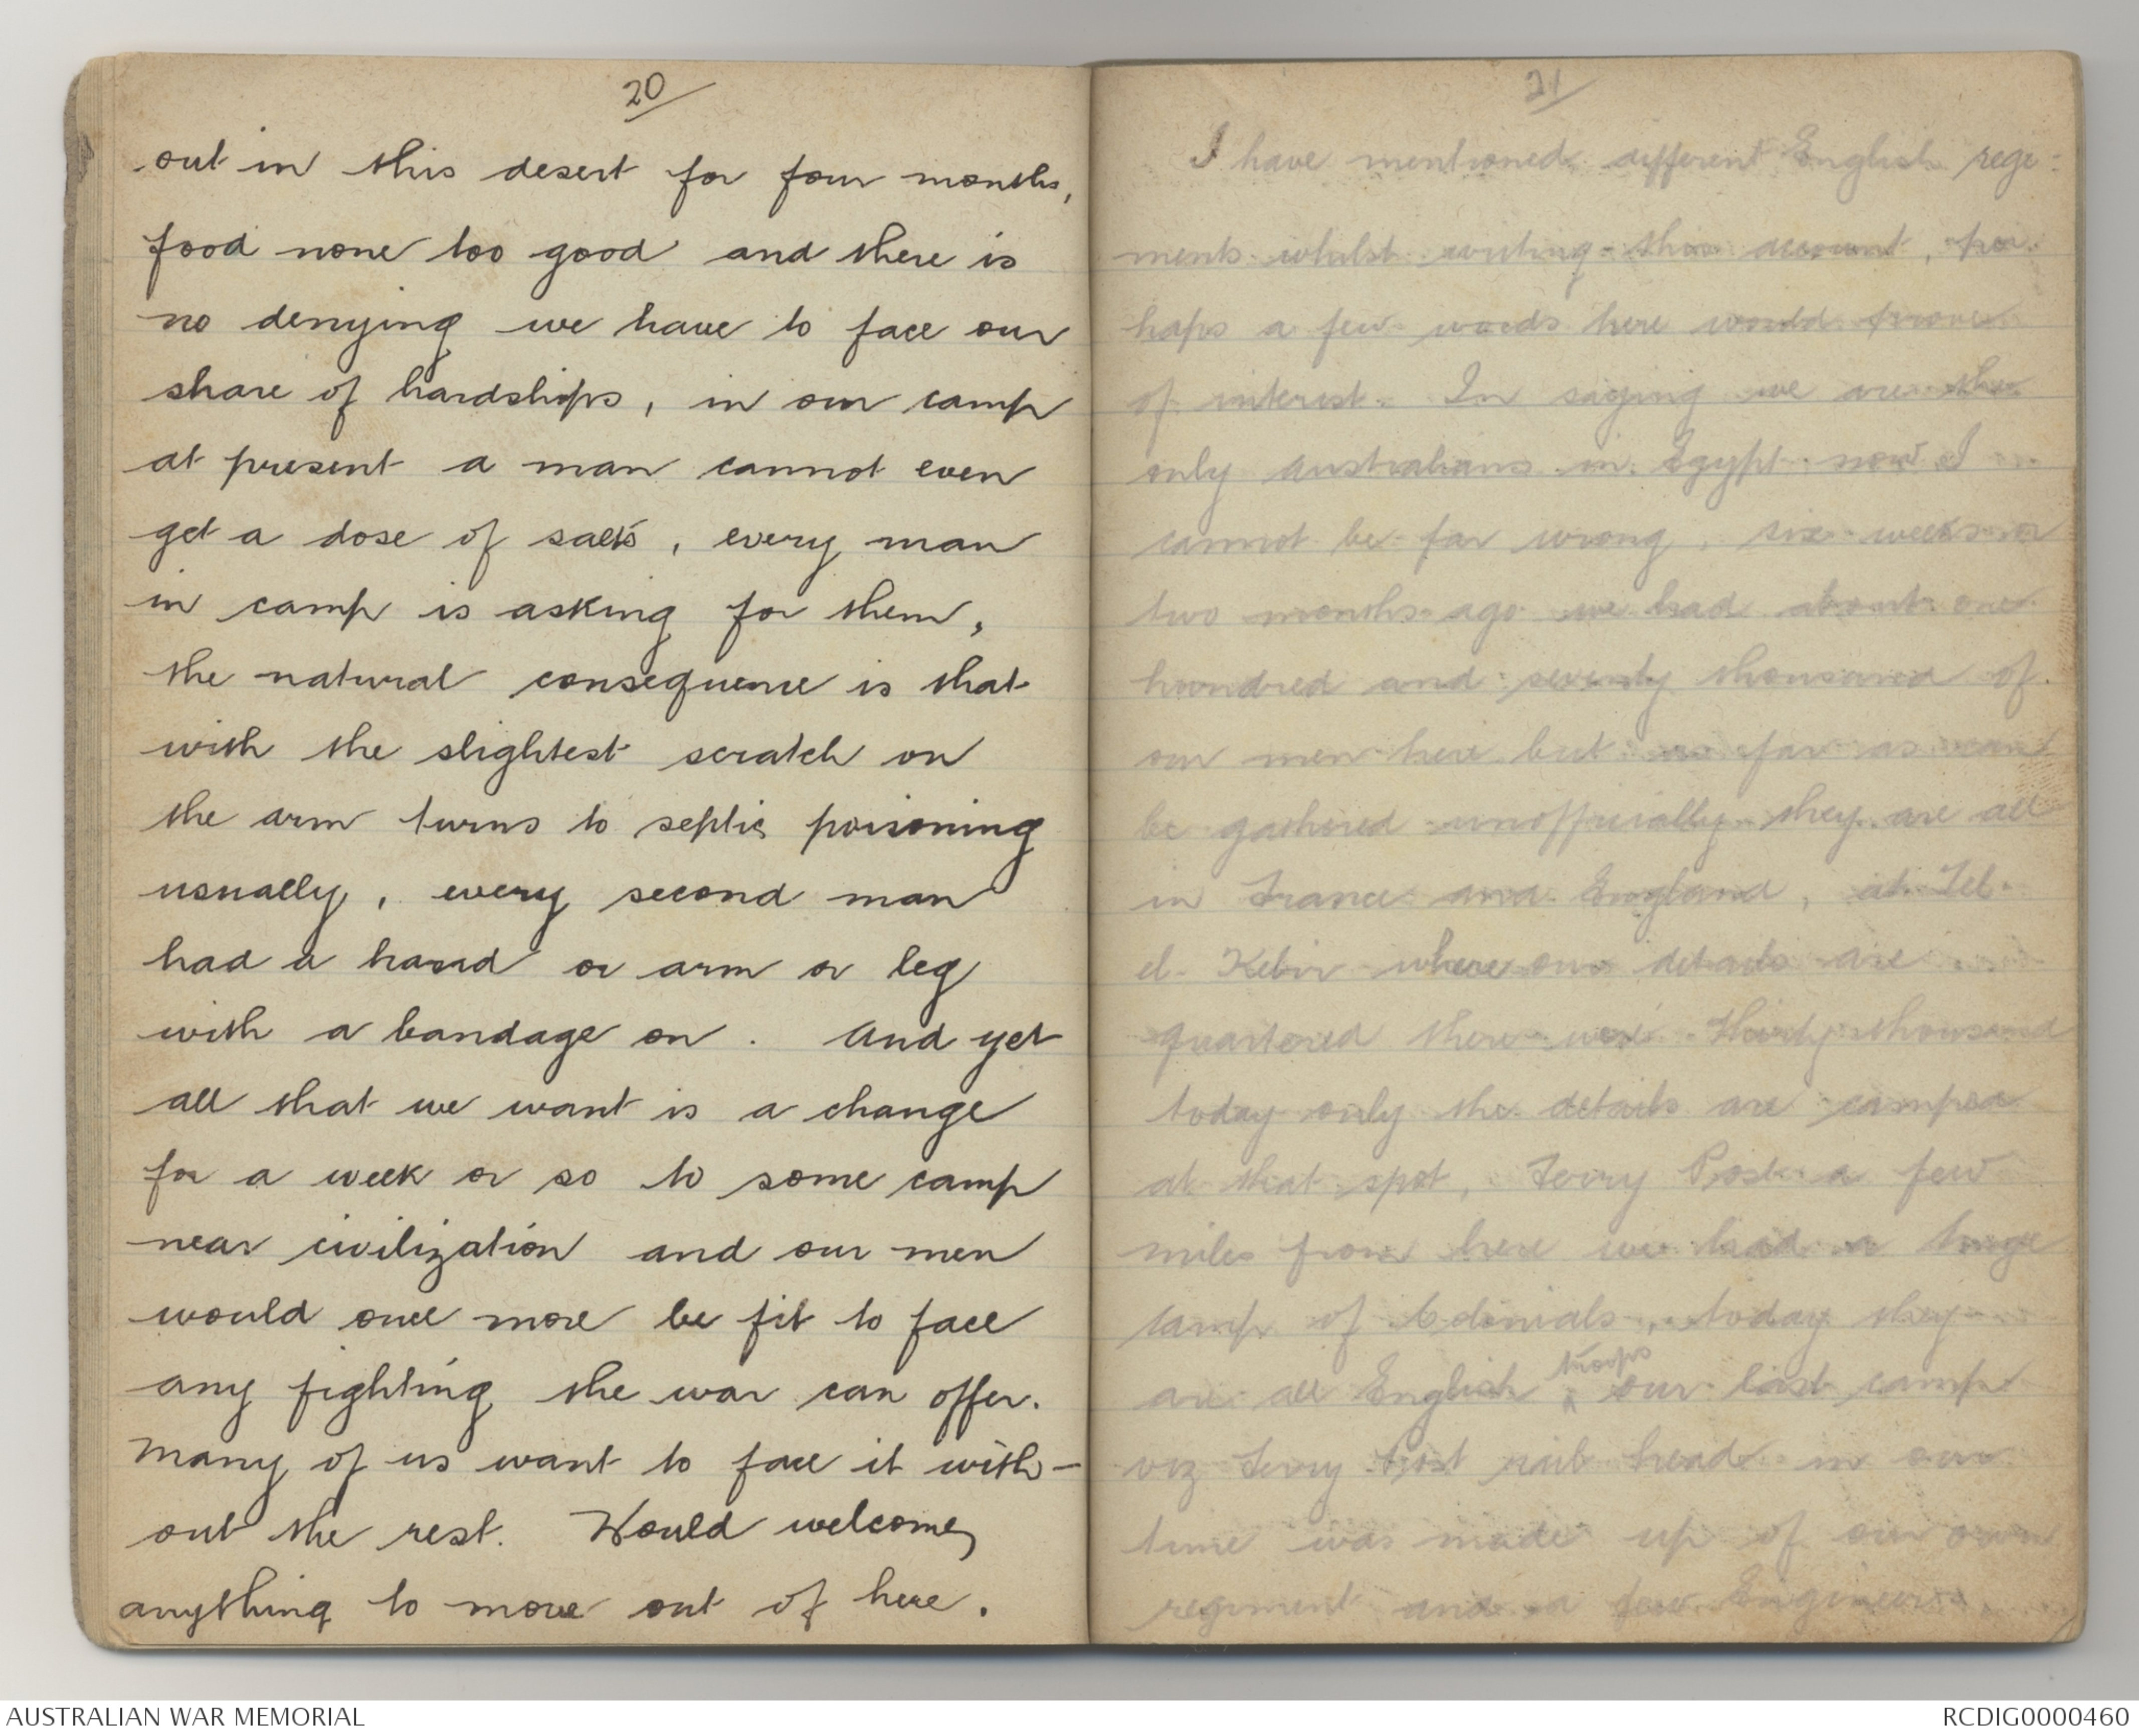 20
out in this desert for four months,
food none too good and there is
no denying we have to face our
share of hardships, in our camp
at present a man cannot even
get a dose of salts, every man
in camp is asking for them,
the natural consequence is that
with the slightest scratch on
the arm turns to septic poisoning
usually, every second man
had a hand or arm or leg
with a bandage on. And yet
all that we want is a change
for a week or so to some camp
near civilization and our men
would once more be fit to face
any fighting the war can offer.
Many of us want to face it with-
out the rest. Would welcome
anything to move out of here.
21
I have mentioned different English regi-
ments whilst writing this account, per-
haps a few words here would prove
of interest. In saying we are the
only Australians in Egypt now I
cannot be far wrong, six weeks or
two months ago we had about one
hundred and seventy thousand of
our men here but as far as can
be gathered unofficially they are all
in France and England, at Tel-
el-Kebir where our details are
quartered there were thirty thousand
today only the details are camped
at that spot, Ferry Post a few
miles from here we had a large
camp of Colonials, today they
are all English troops our last camp
viz Ferry Post rail head in our
time was made up of our own
regiment and a few Engineers.
AUSTRALIAN WAR MEMORIAL
RCDIG0000460